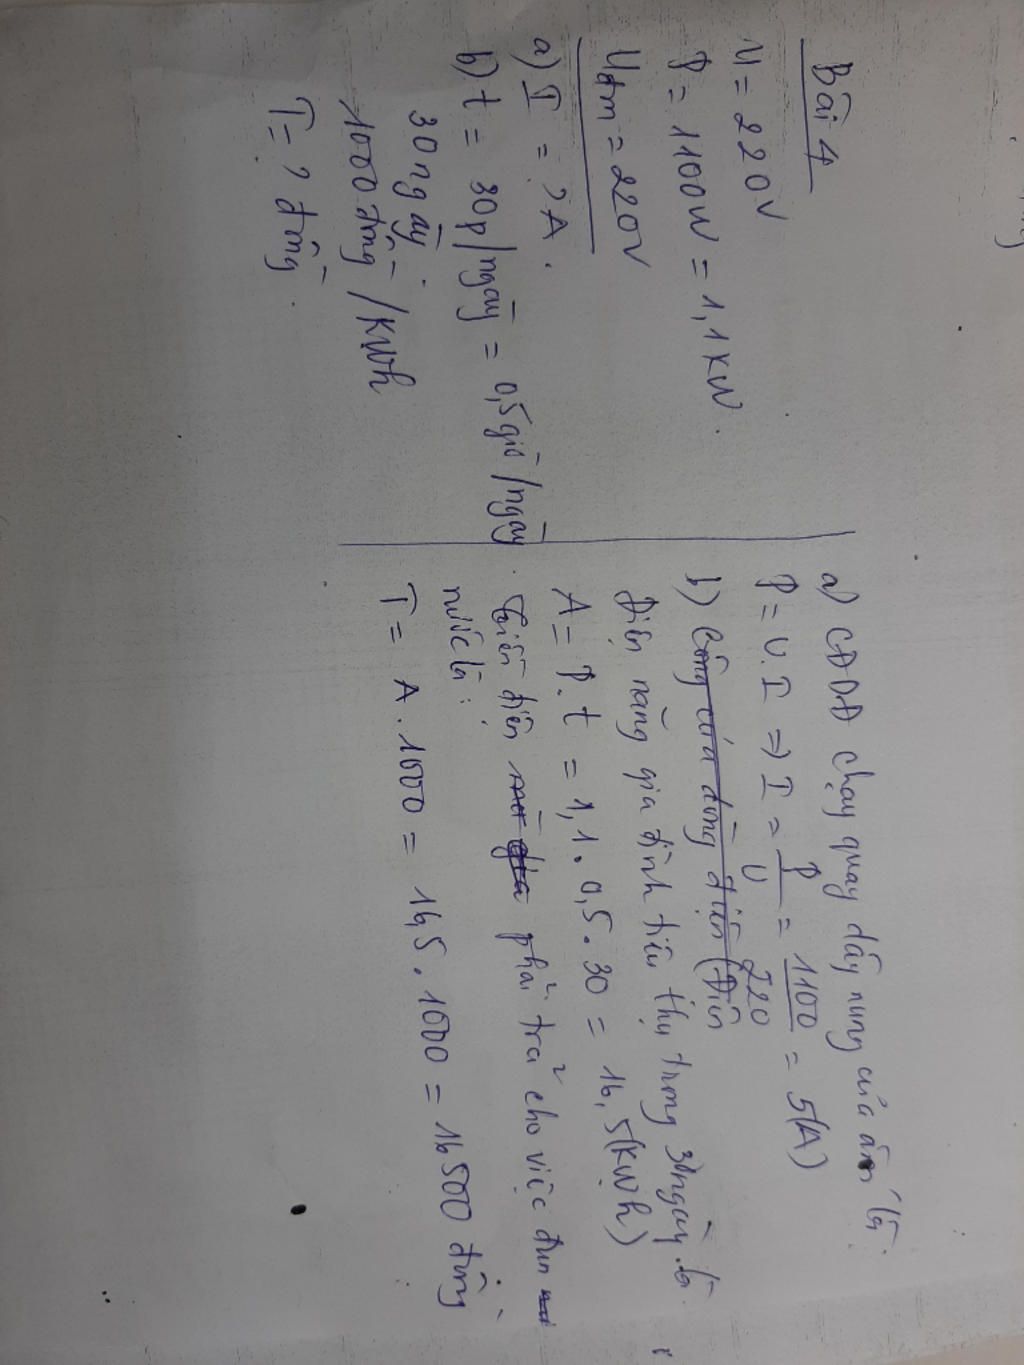 Bài 4
U = 220V
P = 1100W = 1,1KW.
Uđm = 220V
a) I = ? A.
b) t = 30p/ngày = 0,5 giờ/ngày.
30 ngày.
1000 đồng/KWh
T = ? đồng.
a) CĐDĐ chạy quay dây nung của ấm là:
P = U.I => I = P/U = 1100/220 = 5(A)
b) Công của dòng điện (Điên
Điện năng gia đình tiêu thụ trong 30 ngày là
A = P.t = 1,1.0,5.30 = 16,5(KWh)
Tiền điện phải trả cho việc đun
nước là:
T = A.1000 = 16,5.1000 = 16500 đồng